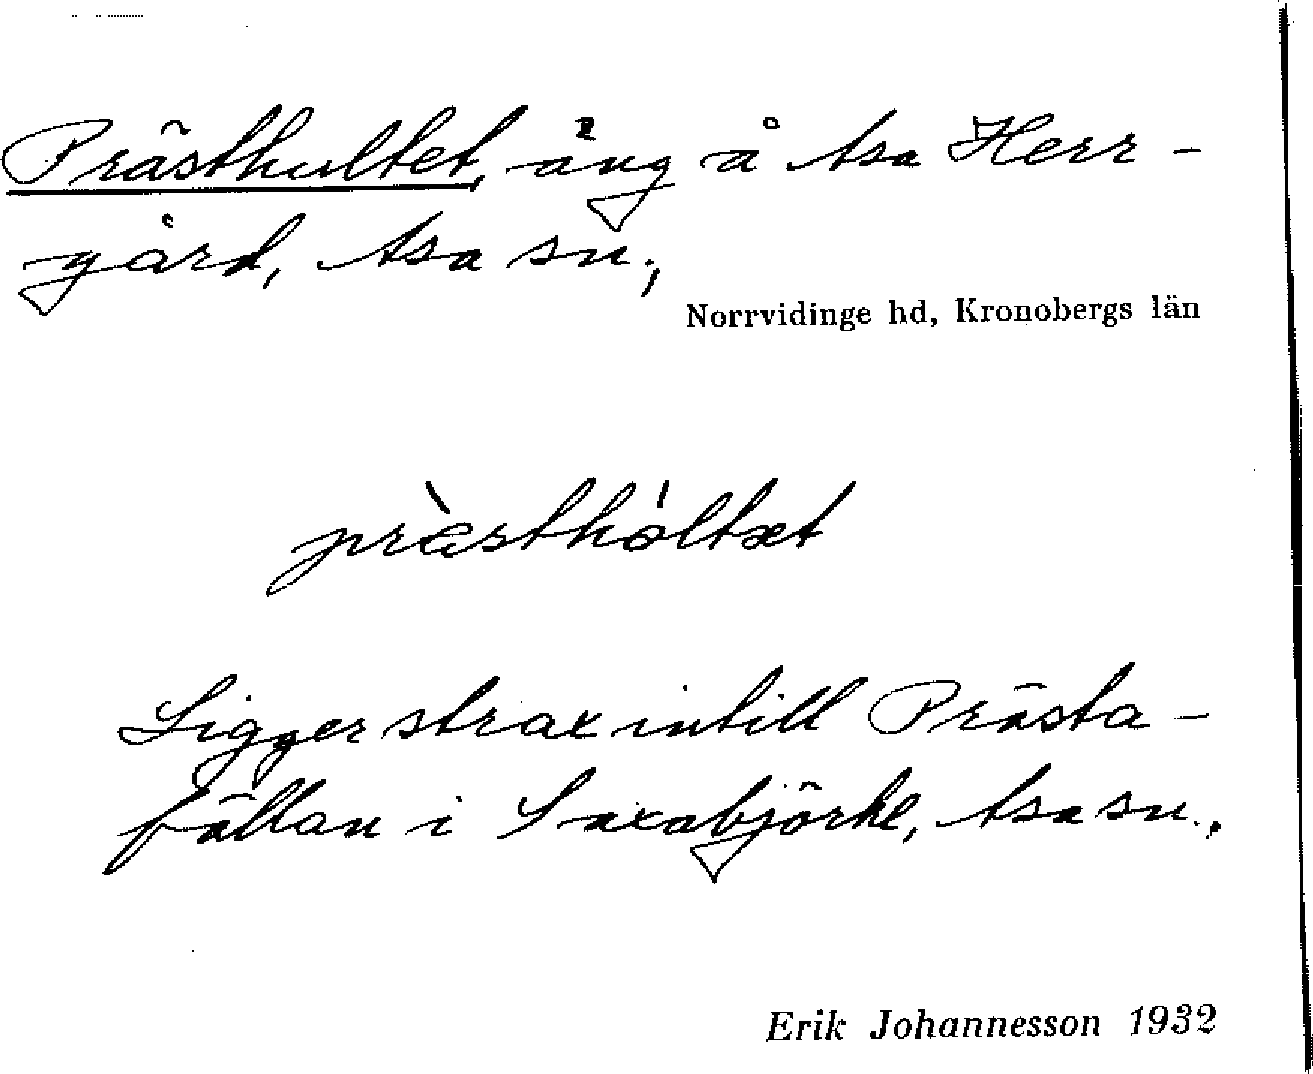 Prästhultet, äng å Asa Herr-
gård, Asa sn.,
Norrvidinge hd, Kronobergs län
præ̀sthòltət
Ligger strax intill Prästa-
fällan i Saxabjörke, Asa sn.,
Erik Johannesson 1932